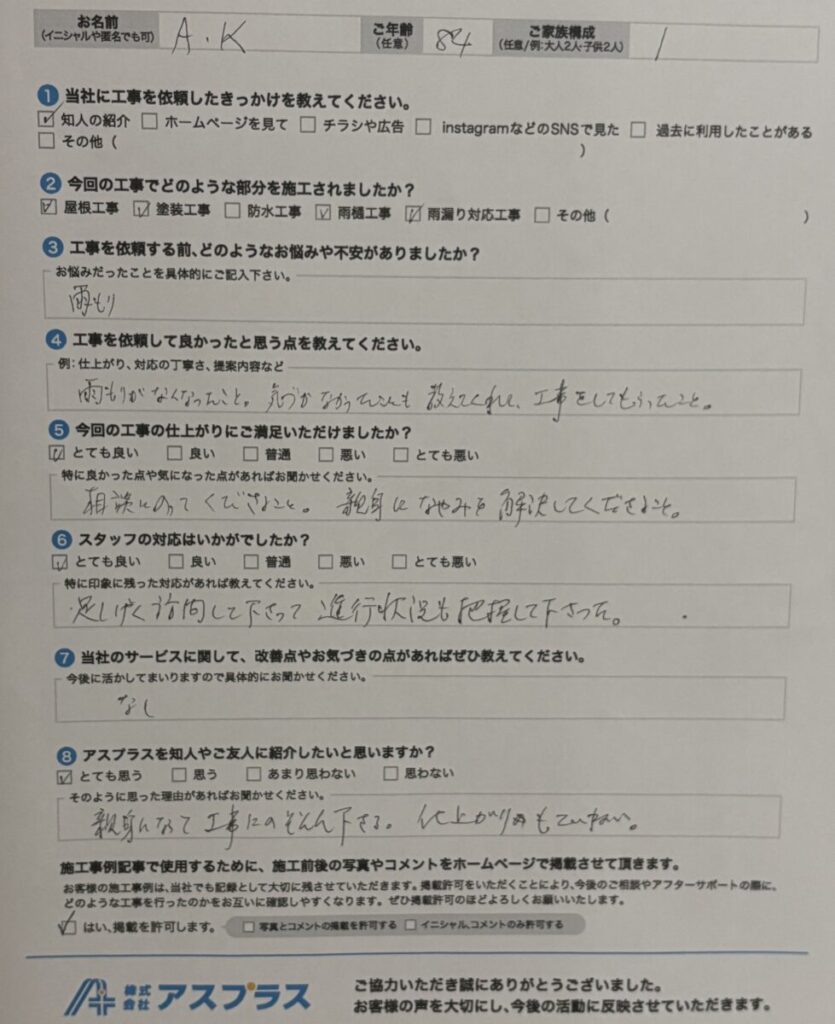 お名前
(イニシャルや匿名でも可)
A.K
ご年齢
(任意)
84
ご家族構成
(任意/例:大人2人・子供2人)
1
1 当社に工事を依頼したきっかけを教えてください。
☑ 知人の紹介 □ ホームページを見て □ チラシや広告 □ instagramなどのSNSで見た □ 過去に利用したことがある
□ その他 ( )
2 今回の工事でどのような部分を施工されましたか?
☑ 屋根工事 ☑ 塗装工事 □ 防水工事 ☑ 雨樋工事 ☑ 雨漏り対応工事 □ その他 ( )
3 工事を依頼する前、どのようなお悩みや不安がありましたか?
お悩みだったことを具体的にご記入下さい。
雨もり
4 工事を依頼して良かったと思う点を教えてください。
例:仕上がり、対応の丁寧さ、提案内容など
雨もりがなくなったこと。気づかなかったことも教えてくれて、工事をしてもらったこと。
5 今回の工事の仕上がりにご満足いただけましたか?
☑ とても良い □ 良い □ 普通 □ 悪い □ とても悪い
特に良かった点や気になった点があればお聞かせください。
相談にのってくださること。親身になやみを解決してくださること。
6 スタッフの対応はいかがでしたか?
☑ とても良い □ 良い □ 普通 □ 悪い □ とても悪い
特に印象に残った対応があれば教えてください。
足しげく訪問して下さって進行状況も把握して下さった。
7 当社のサービスに関して、改善点やお気づきの点があればぜひ教えてください。
今後に活かしてまいりますので具体的にお聞かせください。
なし
8 アスプラスを知人やご友人に紹介したいと思いますか?
☑ とても思う □ 思う □ あまり思わない □ 思わない
そのように思った理由があればお聞かせください。
親身になって工事にのぞんで下さる。仕上がりもていねい。
施工事例記事で使用するために、施工前後の写真やコメントをホームページで掲載させて頂きます。
お客様の施工事例は、当社でも記録として大切に残させていただきます。掲載許可をいただくことにより、今後のご相談やアフターサポートの際に、
どのような工事を行ったのかをお互いに確認しやすくなります。ぜひ掲載許可のほどよろしくお願いいたします。
☑ はい、掲載を許可します。 □ 写真とコメントの掲載を許可する □ イニシャル、コメントのみ許可する
株式会社 アスプラス
ご協力いただき誠にありがとうございました。
お客様の声を大切にし、今後の活動に反映させていただきます。